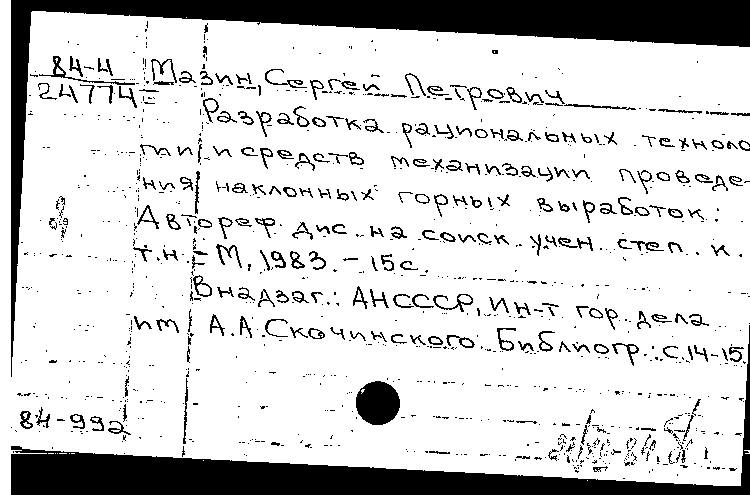 84-4 Мазин, Сергей Петрович
24774=
Разработка рациональных техноло
гии и средств механизации проведе-
ния наклонных горных выработок:
Автореф. дис. на соиск. учен. степ. к.
т.н. = М, 1983. - 15 с.
В надзаг.: АНСССР, Ин-т гор. дела
им. А.А. Скочинского. Библиогр.: с. 14-15
84-992